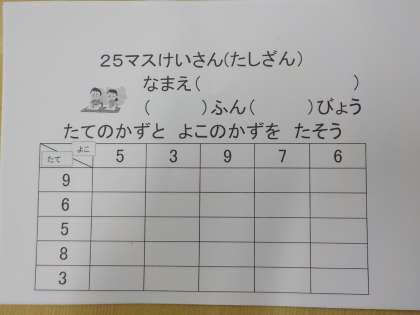 25マスけいさん(たしざん)
なまえ(　　　　　　　　)
(　　　)ふん(　　　)びょう
たてのかずと よこのかずを たそう
よこ
たて 5 3 9 7 6
9
6
5
8
3